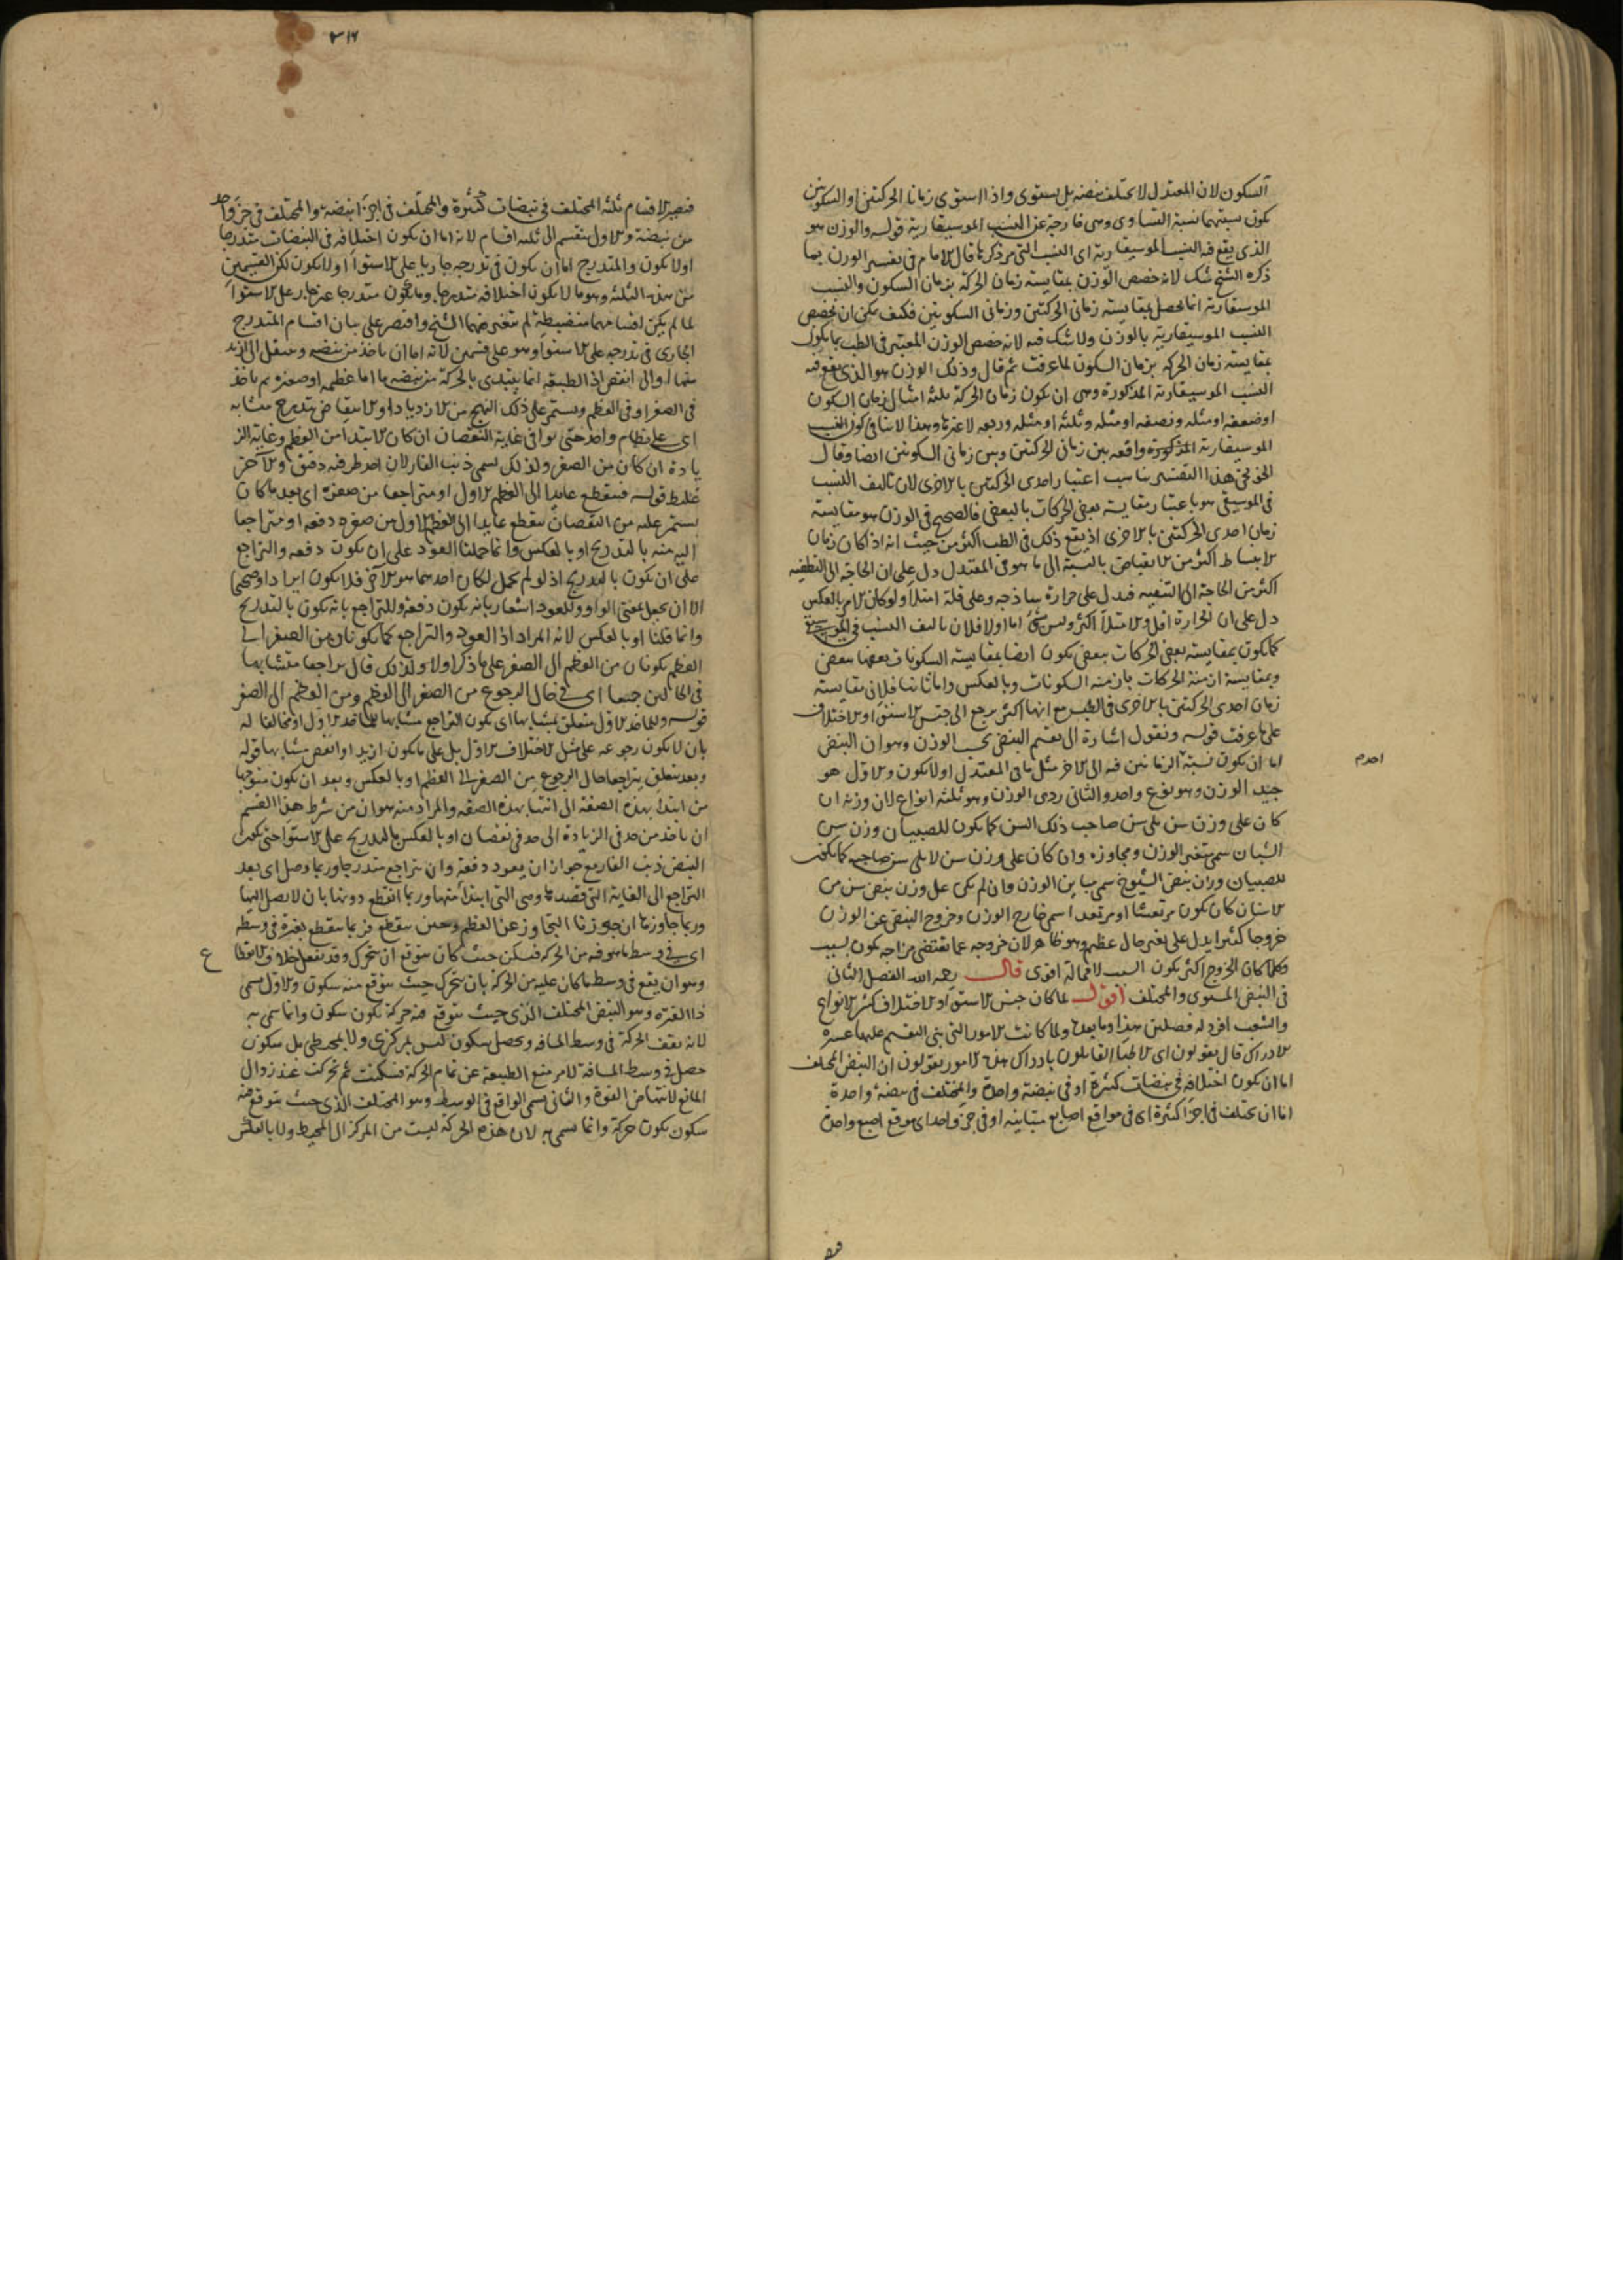 السكون لان المعتدل لا يختلف نبضه بل يستوى واذا استوى زمانا الحركتين او السكونين
يكون نسبتهما نسبة التساوى وهى خارجة عن النسب الموسيقارية قوله والوزن هو
الذى يقع فيه النسب الموسيقارية اى النسب التى مر ذكرها قال الامام فى تفسير الوزن بما
ذكره الشيخ شك لانه خصص الوزن بمقايسة زمان الحركة بزمان السكون والنسب
الموسيقارية انما تحصل بمقايسة زمانى الحركتين وزمانى السكونين فكيف يمكن ان تخصص
النسب الموسيقارية بالوزن ولا شك فيه لانه خصص الوزن المعتبر فى الطب بما يكون
بمقايسة زمان الحركة بزمان السكون لما عرفت ثم قال وذلك الوزن هو الذى يقع فيه
النسب الموسيقارية المذكورة وهى ان يكون زمان الحركة ثلثة امثال زمان السكون
او ضعفه او مثله ونصفه او مثله وثلثه او مثله وربعه لا غيرها وهذا لا ينافى كون النسب
الموسيقارية المذكورة واقعة بين زمانى الحركتين وبين زمانى السكونين ايضا وقال
الخونجى هذا التفسير يناسب اعتبار احدى الحركتين بالاخرى لان تاليف النسب
فى الموسيقى هو باعتبار مقايسة بعض الحركات بالبعض فالصحيح فى الوزن هو مقايسة
زمان احدى الحركتين بالاخرى اذ يقع ذلك فى الطب اكثر من حيث انه اذا كان زمان
الانبساط اكثر من الانقباض بالنسبة الى ما هو فى المعتدل دل على ان الحاجة الى التطفية
اكثر من الحاجة الى التنقية فيدل على حرارة ساذجة وعلى قلة امتلا ولو كان الامر بالعكس
دل على ان الحرارة اقل والامتلا اكثر وليس بشئ اما اولا فلان تاليف النسب فى الموسيقى
كما يكون بمقايسة بعض الحركات ببعض يكون ايضا بمقايسة السكونات بعضها ببعض
وبمقايسة ازمنة الحركات بازمنة السكونات وبالعكس واما ثانيا فلان مقايسة
زمان احدى الحركتين بالاخرى فى الطب مع انها اكثر يرجع الى جنس الاستوا والاختلاف
على ما عرفت قوله ونقول اشارة الى تقسيم النبض بحسب الوزن وهو ان النبض
اما ان يكون نسبة الزمانين فيه الى الاخر مثل ما فى المعتدل او لا يكون والاول هو
جيد الوزن وهو نوع واحد والثانى ردى الوزن وهو ثلثة انواع لان وزنه ان
كان على وزن سن يلى سن صاحب ذلك السن كما يكون للصبيان وزن سن
الشبان سمى متغير الوزن ومجاوزه وان كان على وزن سن لا يلى سن صاحبه كما يكون
للصبيان وزان نبض الشيوخ سمى مباين الوزن وان لم يكن على وزن نبض سن من
الاسنان كان يكون مرتعشا او مرتعدا سمى خارج الوزن وخروج النبض عن الوزن
خروجا كثيرا يدل على تغير حال عظيم وهو ظاهر لان خروجه عما يقتضى مزاجه يكون بسبب
وكلما كان الخروج اكثر يكون السبب لا محالة اقوى قال رحمه الله الفصل الثانى
فى النبض المستوى والمختلف اقول لما كان جنس الاستوا والاختلاف كثير الانواع
والشعب افرد له فصلين هذا وما بعده ولما كانت الامور التى بنى التقسيم عليها عسرة
الادراك قال يقولون اى الاطبا القايلون بادراك هذه الامور يقولون ان النبض المختلف
اما ان يكون اختلافه فى نبضات كثيرة او فى نبضة واحدة والمختلف فى نبضة واحدة
اما ان يختلف فى اجزا كثيرة اى فى مواقع اصابع متباينة او فى جزو احد اى موقع اصبع واحدة
احدم
فيصير
٣١٦
فيصير الاقسام ثلثة المختلف فى نبضات كثيرة والمختلف فى اجزا نبضة والمختلف فى جزو احد
من نبضة والاول ينقسم الى ثلثة اقسام لانه اما ان يكون اختلافه فى النبضات متدرجا
او لا يكون والمتدرج اما ان يكون فى تدرجه جاريا على الاستوا او لا يكون لكن القسمين
من هذه الثلثة وهو ما لا يكون اختلافه متدرجا وما يكون متدرجا غير جار على الاستوا
لما لم يكن اقسامهما منضبطة لم يتعرض لهما الشيخ واقتصر على بيان اقسام المتدرج
الجارى فى تدرجه على الاستوا وهو على قسمين لانه اما ان ياخذ من نبضه وينتقل الى ازيد
منها او الى انقص اذ الطبيعة انما يبتدى بالحركة من نبضة ما اما عظيمة او صغيرة ثم ياخذ
فى الصغر او فى العظم ويستمر على ذلك النهج من الازدياد او الانتقاص بتدريج متشابه
اى على نظام واحد حتى يوافى غاية النقصان ان كان الابتدا من العظم وغاية الز
يادة ان كان من الصغر ولذلك سمى ذنب الفار لان احد طرفيه دقيق والاخر
غليظ قوله فينقطع عايدا الى العظم الاول او متراجعا من صغره اى بعد ما كان
يستمر عليه من النقصان ينقطع عايدا الى العظم الاول من صغره دفعة او متراجعا
اليه منه بالتدريج او بالعكس وانما حملنا العود على ان يكون دفعة والتراجع
على ان يكون بالتدريج اذ لو لم يحمل لكان احدهما هو الاخر فلا يكون ايراد او صحيحا
الا ان يجعل بمعنى الواو وللعود اشعار بانه يكون دفعة وللتراجع بانه يكون بالتدريج
وانما قلنا او بالعكس لانه المراد اذ العود والتراجع كما يكونان من الصغر الى
العظم يكونان من العظم الى الصغر على ما ذكر اولا ولذلك قال تراجعا متشابها
فى الحالين جميعا اى فى حال الرجوع من الصغر الى العظم ومن العظم الى الصغر
قوله وللماخذ الاول متعلق بمتشابها اى يكون التراجع مشابها للماخذ الاول او مخالفا له
بان لا يكون رجوعه على مثل الاختلاف الاول بل على ما يكون ازيد او انقص مشابها قوله
وبعد متعلق بتراجعا حال الرجوع من الصغر الى العظم او بالعكس وبعد ان يكون متوجها
من ابتدا بهذه الصفة الى انتها بهذه الصفة والمراد منه هو ان من شرط هذا القسم
ان ياخذ من حد فى الزيادة الى حد فى نقصان او بالعكس بالتدريج على الاستوا حتى يكون
النبض ذنب الفار مع جواز ان يعود دفعة وان يتراجع متدرجا وربما وصل اى بعد
التراجع الى الغاية التى قصدها وهى التى ابتدا منها وربما انقطع دونها بان لا يصل اليها
وربما جاوزها ان جوزنا التجاوز عن العظم وحين ينقطع فربما ينقطع بفترة فى وسطه
اى فى وسط ما هو فيه من الحركة فيسكن حيث كان يتوقع ان يتحرك وقد يفعل خلاف الانقطا
ع
وهو ان يقع فى وسط ما كان عليه من الحركة بان يتحرك حيث يتوقع منه سكون والاول سمى
ذا الفترة وهو النبض المختلف الذى حيث يتوقع فيه حركة يكون سكون وانما سمى به
لانه يقف الحركة فى وسط المسافة ويحصل سكون ليس بمركزى ولا بمحيطى بل سكون
حصل فى وسط المسافة لامر منع الطبيعة عن تمام الحركة فسكنت ثم تحركت عند زوال
المانع لانتهاض القوة والثانى يسمى الواقع فى الوسط وهو المختلف الذى حيث يتوقع فيه
سكون يكون حركة وانما سمى به لان هذه الحركة ليست من المركز الى المحيط ولا بالعكس